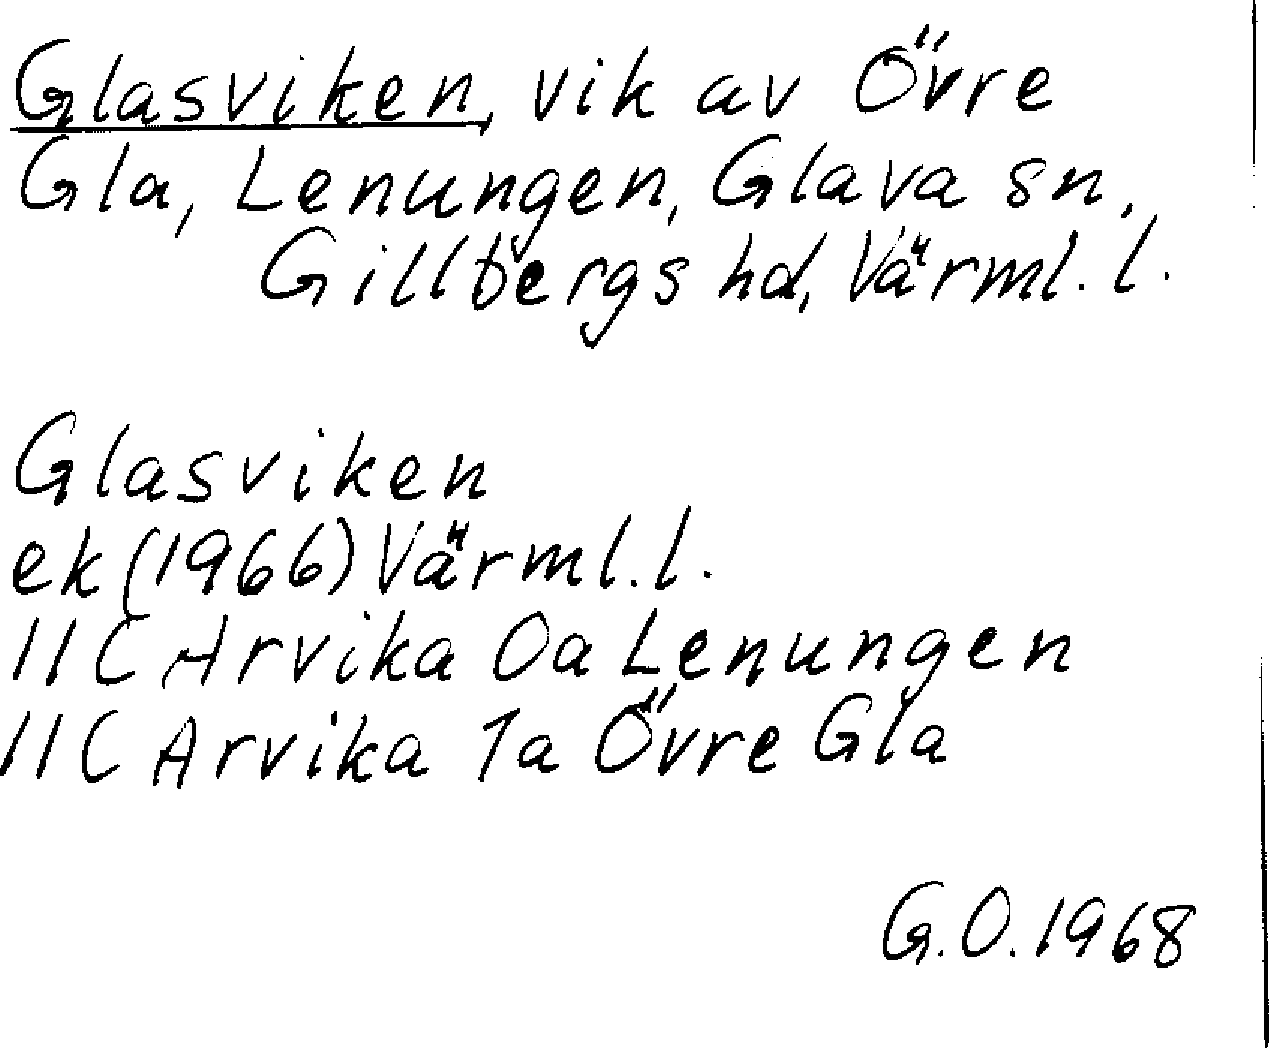 Glasviken, vik av Övre
Gla, Lenungen, Glava sn,
Gillbergs hd, Värml. l.
Glasviken
ek (1966) Värml. l.
11 C Arvika 0a Lenungen
11 C Arvika 1a Övre Gla
G.O. 1968